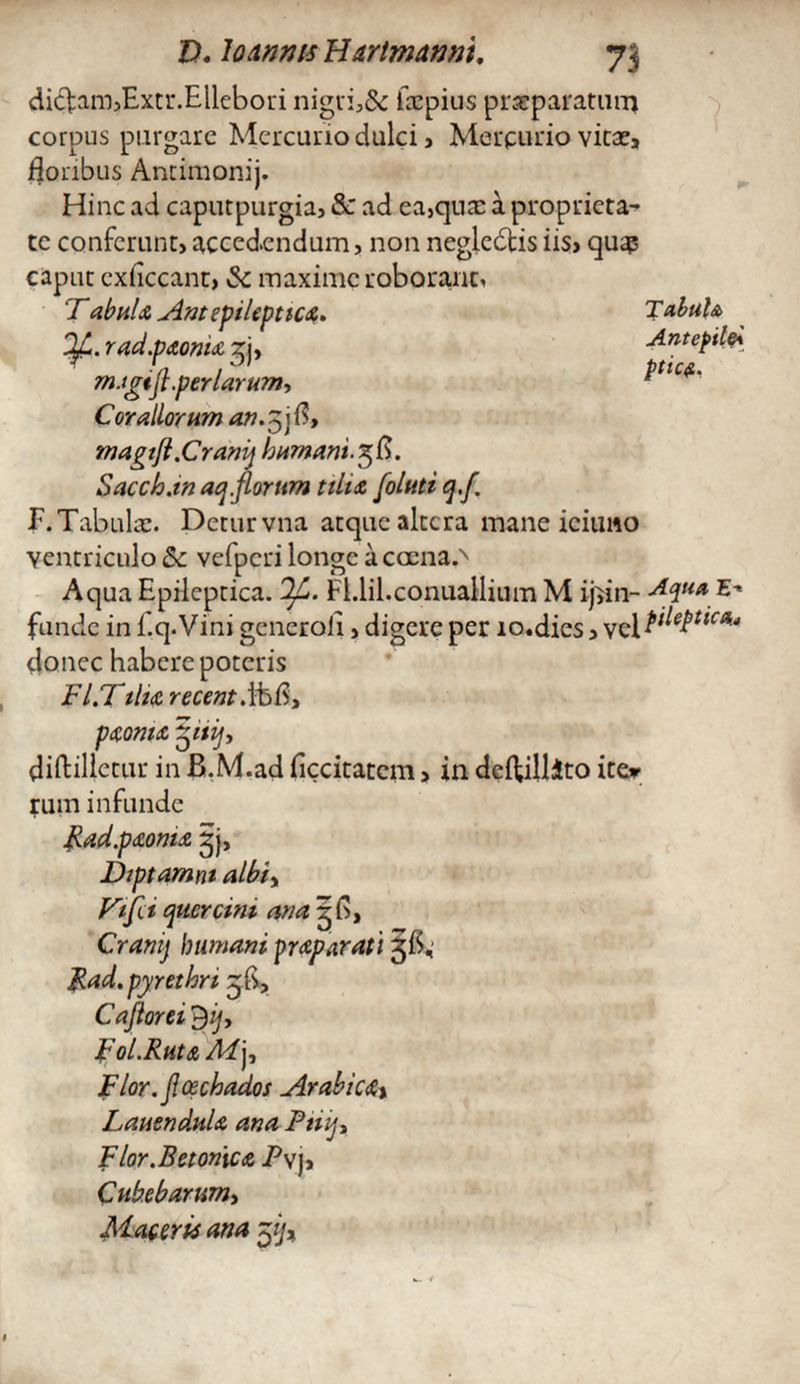 D. Ioannis Hartmanni. 73
dictam,Extr.Ellebori nigri,& sæpius præparatum
corpus purgare Mercurio dulci, Mercurio vitæ,
floribus Antimonij.
Hinc ad caputpurgia, & ad ea,quæ à proprieta-
te conferunt, accedendum, non neglectis iis, quæ
caput exsiccant, & maxime roborant,
Tabulæ Antepilepticæ.
Tabulæ
Antepile
pticæ.
♃. rad.pæoniæ ʒj,
magist.perlarum,
Corallorum an.ʒjß,
magist.Cranij humani.ʒß.
Sacch.in aq.florum tiliæ soluti q.s.
F.Tabulæ. Detur vna atque altera mane ieiuno
ventriculo & vesperi longe à cœna.
Aqua Epileptica. ♃. Fl.lil.conuallium M ij,in-
funde in s.q.Vini generosi, digere per 10.dies, vel
Aqua E-
pileptica.
donec habere poteris
Fl.Tiliæ recent.℔ß,
pæoniæ ℥iiij,
distilletur in B.M.ad siccitatem, in destillato ite-
rum infunde
Rad.pæoniæ ℥j,
Diptamni albi,
Visci quercini ana ℥ß,
Cranij humani præparati ℥ß,
Rad.pyrethri ʒß,
Castorei ℈ij,
Fol.Rutæ Mj,
Flor.stœchados Arabicæ,
Lauendulæ ana Piiij,
Flor.Betonicæ Pvj,
Cubebarum,
Maceris ana ʒij,